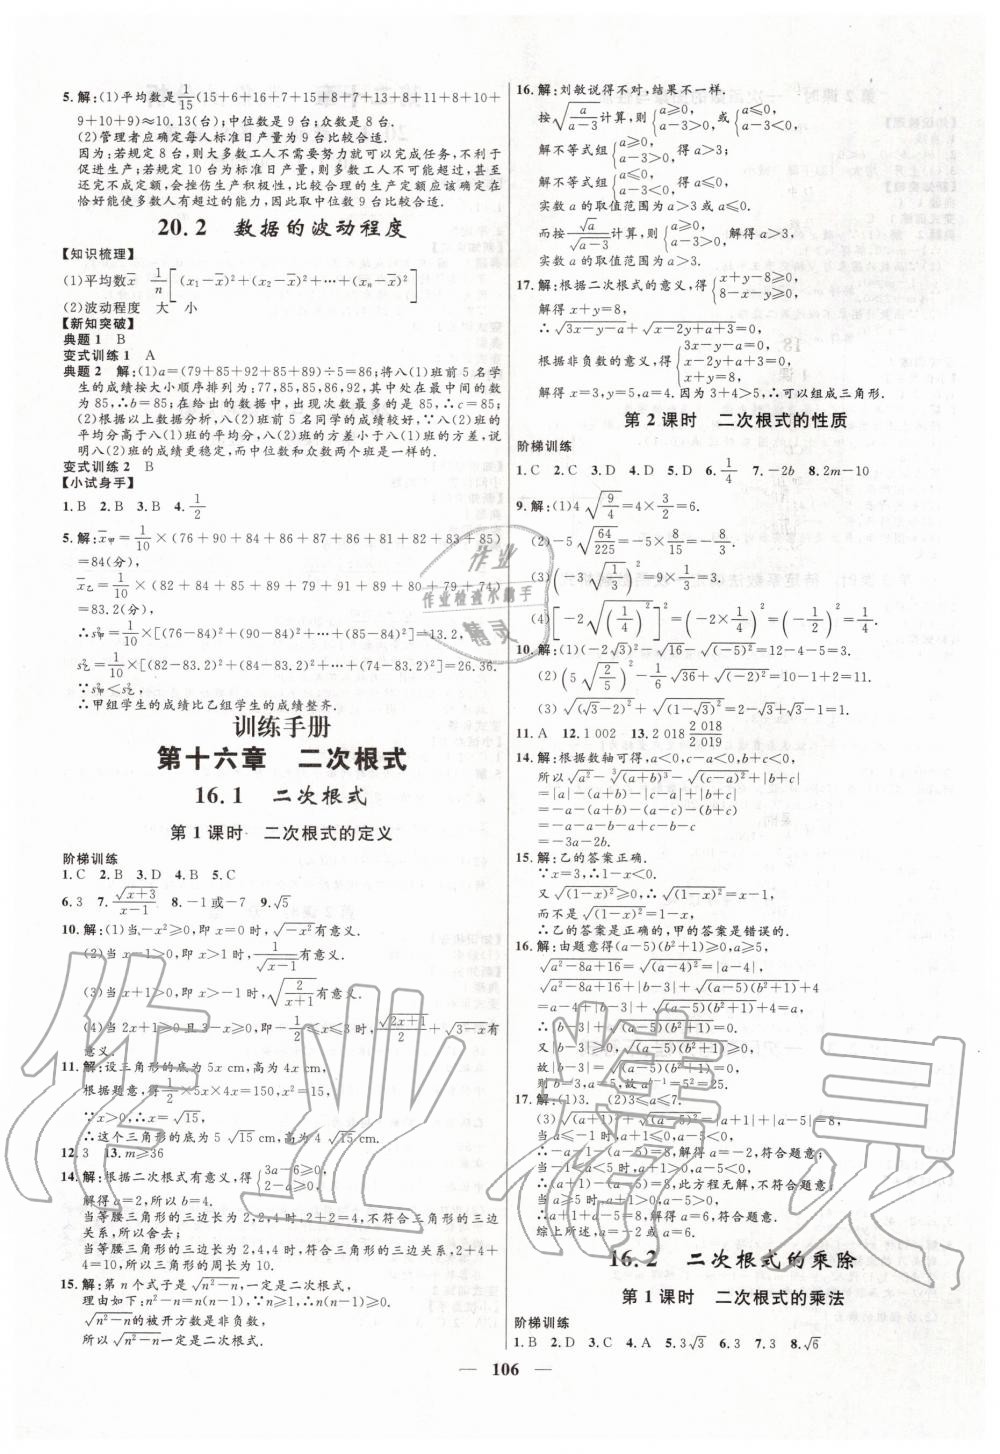 5. 解:(1)平均数是1/15(15+6+16+7+15+8+7+13+8+11+8+10+
9+10+9)≈10.13(台);中位数是9台;众数是8台.
(2)管理者应确定每人标准日产量为9台比较合适.
因为:若规定8台,则大多数工人不需要努力就可以完成任务,不利于
促进生产;若规定10台为标准日产量,则多数工人不可能超过,甚至
还完不成定额,会挫伤生产积极性,比较合理的生产定额应该确定在
恰好能使多数人有超过的能力,因此取中位数9台比较合适.
20.2 数据的波动程度
【知识梳理】
(1)平均数x̄ 1/n[(x₁-x̄)²+(x₂-x̄)²+…+(xₙ-x̄)²]
(2)波动程度 大 小
【新知突破】
典题1 B
变式训练1 A
典题2 解:(1)a=(79+85+92+85+89)÷5=86;将八(1)班前5名学
生的成绩按大小顺序排列为:77,85,85,86,92,其中处在最中间的数
为85,∴b=85;在给出的数据中,出现次数最多的是85,∴c=85;
(2)根据以上数据分析,八(2)班前5名同学的成绩较好,∵八(2)班的
平均分高于八(1)班的平均分,八(2)班的方差小于八(1)班的方差,说
明八(2)班的成绩更稳定,而中位数和众数两个班是一样的.
变式训练2 B
【小试身手】
1. B 2. B 3. B 4. 1/2
5. 解:x̄甲=1/10×(76+90+84+86+87+86+81+82+83+85)
=84(分),
x̄乙=1/10×(82+84+85+89+80+94+89+80+79+74)
=83.2(分),
∴s²甲=1/10×[(76-84)²+(90-84)²+…+(85-84)²]=13.2,
s²乙=1/10×[(82-83.2)²+(84-83.2)²+…+(74-83.2)²]=26.36.
∵s²甲<s²乙,
∴甲组学生的成绩比乙组学生的成绩整齐.
训练手册
第十六章 二次根式
16.1 二次根式
第1课时 二次根式的定义
阶梯训练
1. C 2. B 3. D 4. B 5. C
6. 3 7. √(x+3)/(x-1) 8. -1或-7 9. √5
10. 解:(1)当-x²≥0,即x=0时,√(-x²)有意义.
(2)当x-1>0,即x>1时,1/√(x-1)有意义.
(3)当x+1>0,即x>-1时,√(2/(x+1))有意义.
(4)当2x+1≥0且3-x≥0,即-1/2≤x≤3时,√(2x+1)/2+√(3-x)有
意义.
11. 解:设三角形的底为5x cm,高为4x cm,
根据题意,得1/2×5x×4x=150,x²=15,
∵x>0,∴x=√15,
∴这个三角形的底为5√15 cm,高为4√15 cm.
12. 3 13. m≥36
14. 解:根据二次根式有意义,得{3a-6≥0, 2-a≥0,
解得a=2,所以b=4.
当等腰三角形的三边长为2,2,4时,2+2=4,不符合三角形三边
关系,所以舍去;
当等腰三角形的三边长为2,4,4时,符合三角形三边关系,2+4+
4=10,所以三角形的周长为10.
15. 解:第n个式子是√(n²-n),一定是二次根式,
理由如下:n²-n=n(n-1),∵n≥1,∴n(n-1)≥0,
√(n²-n)的被开方数是非负数,
所以√(n²-n)一定是二次根式.
16. 解:刘敏说得不对,结果不一样.
按√(a/(a-3))计算,则{a≥0, a-3>0,或{a≤0, a-3<0,
解不等式组{a≥0, a-3>0,得a>3;
解不等式组{a≤0, a-3<0,得a≤0.
实数a的取值范围为a>3或a≤0.
而按√a/√(a-3)计算,则{a≥0, a-3>0,解得a>3,
实数a的取值范围为a>3.
17. 解:根据二次根式的意义,得{x+y-8≥0, 8-x-y≥0,
解得x+y=8,
∴√(3x-y-a)+√(x-2y+a+3)=0,
根据非负数的意义,得{3x-y-a=0, x-2y+a+3=0, x+y=8,
解得x=3,y=5,a=4.因为3+4>5,∴可以组成三角形.
第2课时 二次根式的性质
阶梯训练
1. C 2. C 3. D 4. D 5. D 6. 1/4 7. -2b 8. 2m-10
9. 解:(1)4√(9/4)=4×3/2=6.
(2)-5√(64/225)=-5×8/15=-8/3.
(3)(-3√(1/3))²=9×1/3=3.
(4)[-2√((1/4)²)]²=(-2×1/4)²=(-1/2)²=1/4.
10. 解:(1)(-2√3)²-√16-√(-5)²=12-4-5=3.
(2)(5√(2/5))²-1/6√36+√(-2)²=10-1+2=11.
(3)√(√3-2)²+√(1-√3)²=2-√3+√3-1=1.
11. A 12. 1 002 13. 2 018 2 018/2 019
14. 解:根据数轴可得,a<0,c-a<0,b+c<0,
所以√a²-∛(a+b)³-√(c-a)²+|b+c|
=|a|-(a+b)-|c-a|+|b+c|
=-a-(a+b)-(a-c)-(b+c)
=-a-a-b-a+c-b-c
=-3a-2b.
15. 解:乙的答案正确.
∵x=3,∴1-x<0.
又√(1-x)²≥0,∴√(1-x)²=x-1,
而不是√(1-x)²=1-x,
∴乙的答案是正确的,甲的答案是错误的.
16. 解:由题意得(a-5)(b²+1)≥0,a≥5,
√(a²-8a+16)=√(a-4)²=|a-4|,
√(a²-8a+16)+|b-3|+√(a-5)(b²+1)+4
=a-4+|b-3|+√(a-5)(b²+1)+4=a,
∴|b-3|+√(a-5)(b²+1)=0.
又|b-3|≥0,√(a-5)(b²+1)≥0,
故|b-3|=√(a-5)(b²+1)=0,
则b=3,a=5,故aᵇ⁻¹=5²=25.
17. (1)3. (2)3≤a≤7.
(3)√(a+1)²+√(a-5)²=|a+1|+|a-5|=8,
当a≤-1时,a+1≤0,a-5<0,
∴-a-1-(a-5)=8,解得a=-2,符合题意.
当-1<a<5时,a+1>0,a-5<0,
∴a+1-(a-5)=8,此方程无解,不符合题意;
当a≥5时,a+1>0,a-5>0,
∴a+1+a-5=8,解得a=6,符合题意.
综上所述,a=-2或a=6.
16.2 二次根式的乘除
第1课时 二次根式的乘法
阶梯训练
1. B 2. D 3. C 4. A 5. 3√3 6. 3 7. 3 8. √6
— 106 —
作业
作业检查小助手
精灵
作业精灵